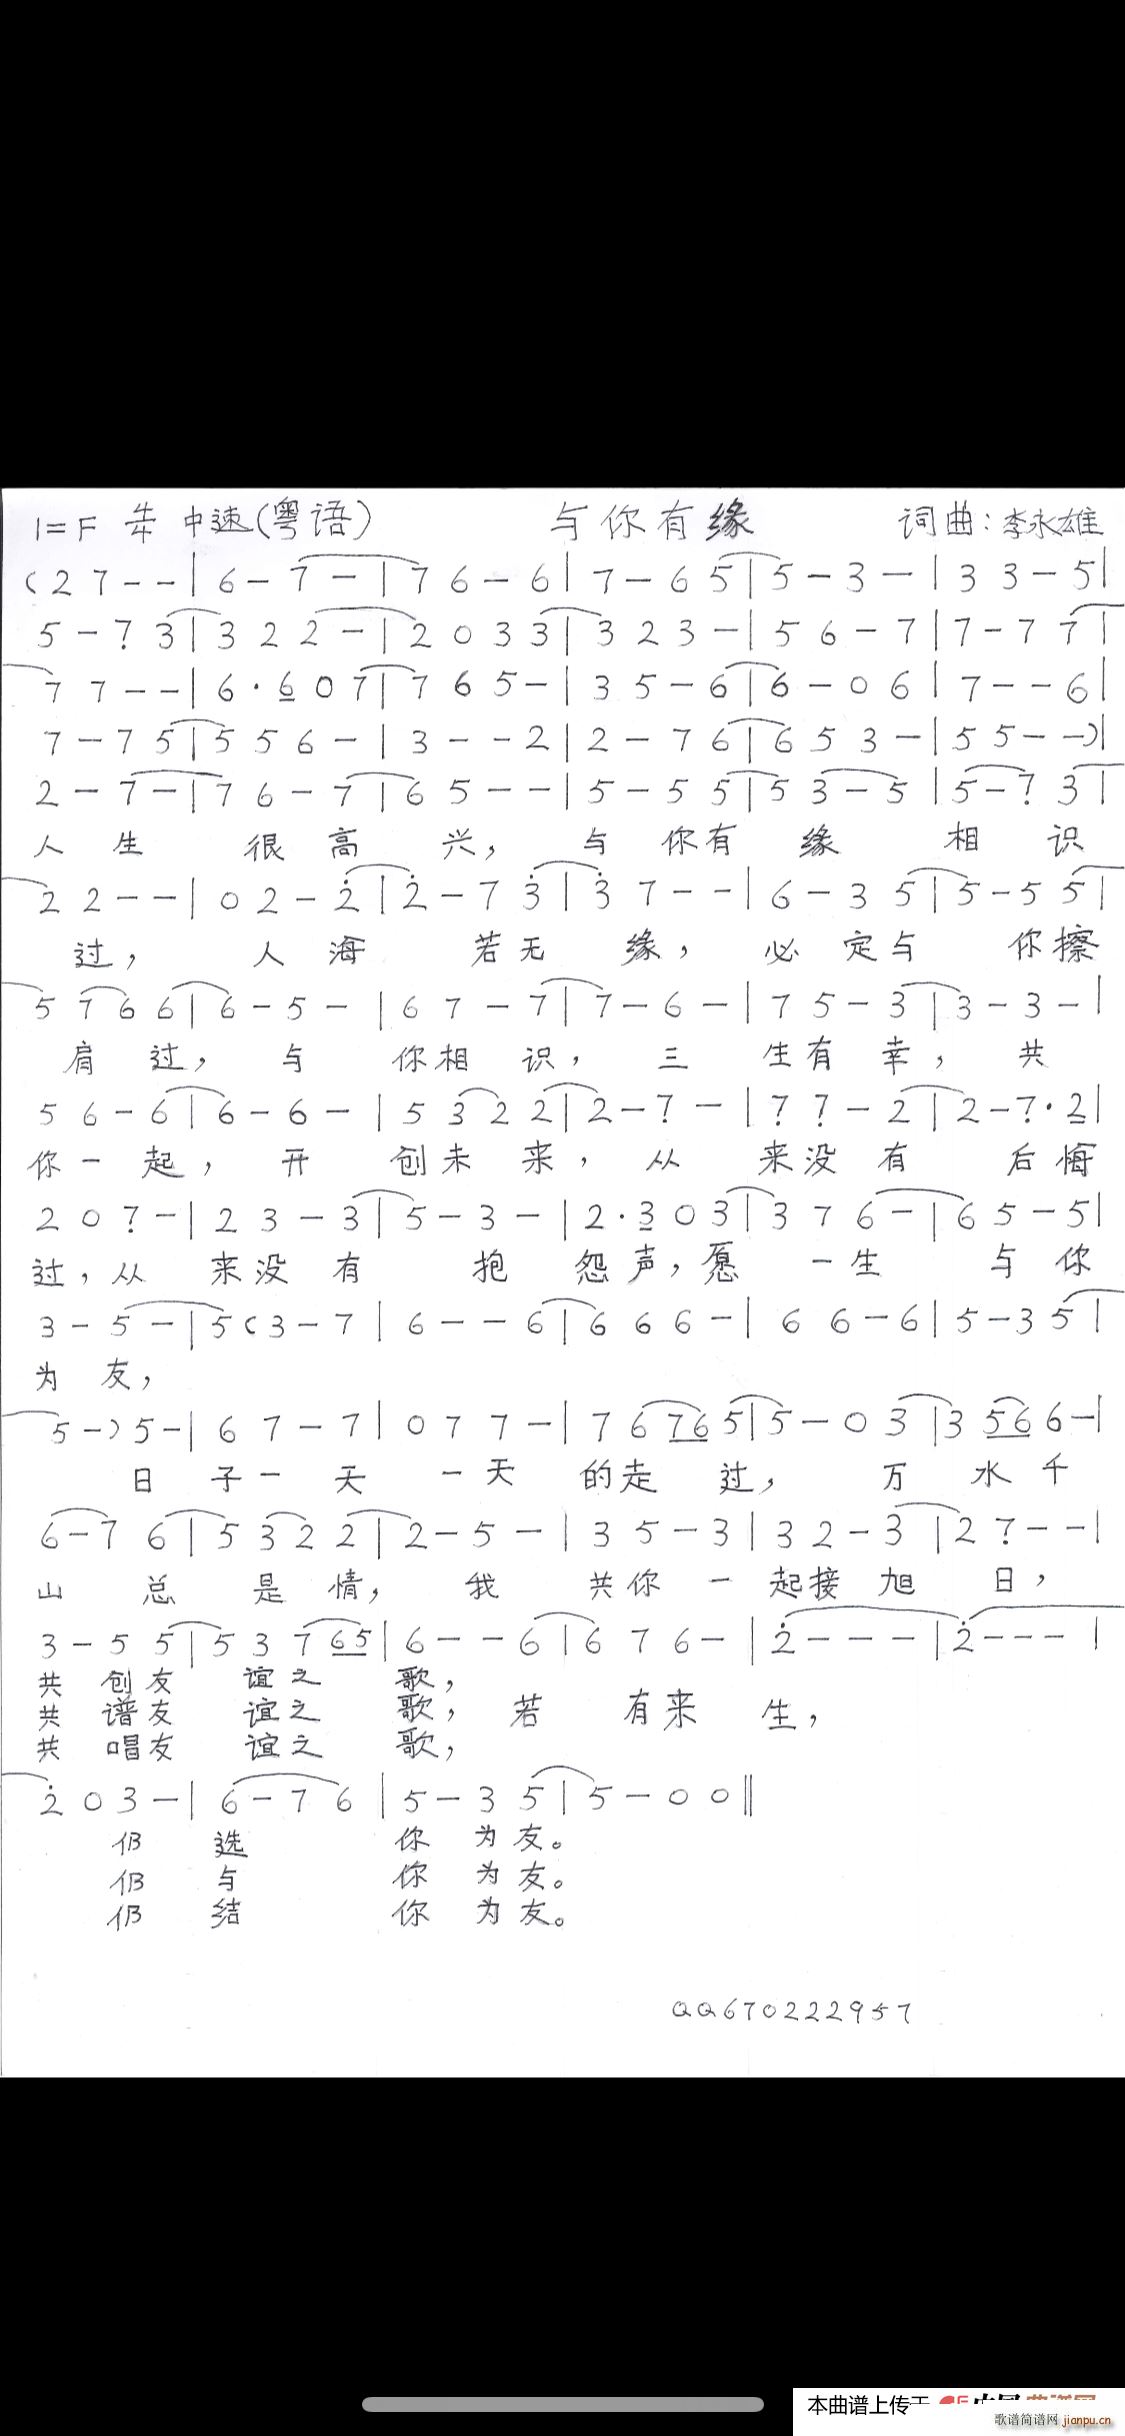 1=F 4/4 中速(粤语) 与你有缘 词曲:李永雄
(2 7 - - | 6 - 7 - | 7 6 - 6 | 7 - 6 5 | 5 - 3 - | 3 3 - 5 |
5 - 7̣ 3 | 3 2 2 - | 2 0 3 3 | 3 2 3 - | 5 6 - 7 | 7 - 7 7 |
7 7 - - | 6 · 6 0 7 | 7 6 5 - | 3 5 - 6 | 6 - 0 6 | 7 - - 6 |
7 - 7 5 | 5 5 6 - | 3 - - 2 | 2 - 7 6 | 6 5 3 - | 5 5 - -) |
2 - 7 - | 7 6 - 7 | 6 5 - - | 5 - 5 5 | 5 3 - 5 | 5 - 7̣ 3 |
人 生 很 高 兴, 与 你有 缘 相 识
2 2 - - | 0 2 - 2̇ | 2̇ - 7 3̇ | 3̇ 7 - - | 6 - 3 5 | 5 - 5 5 |
过, 人 海 若无 缘, 必 定与 你擦
5 7 6 6 | 6 - 5 - | 6 7 - 7 | 7 - 6 - | 7 5 - 3 | 3 - 3 - |
肩 过, 与 你相 识, 三 生有 幸, 共
5 6 - 6 | 6 - 6 - | 5 3 2 2 | 2 - 7̣ - | 7̣ 7̣ - 2 | 2 - 7̣ · 2 |
你一 起, 开 创未 来, 从 来没 有 后悔
2 0 7̣ - | 2 3 - 3 | 5 - 3 - | 2 · 3 0 3 | 3 7 6 - | 6 5 - 5 |
过,从 来没 有 抱 怨声,愿 一生 与你
3 - 5 - | 5 (3 - 7 | 6 - - 6 | 6 6 6 - | 6 6 - 6 | 5 - 3 5 |
为 友,
5 -) 5 - | 6 7 - 7 | 0 7 7 - | 7 6 7 6 5 | 5 - 0 3 | 3 5 6 6 - |
日 子一 天 一天 的走 过, 万 水千
6 - 7 6 | 5 3 2 2 | 2 - 5 - | 3 5 - 3 | 3 2 - 3 | 2 7̣ - - |
山 总 是 情, 我 共你 一 起接 旭 日,
3 - 5 5 | 5 3 7 6 5 | 6 - - 6 | 6 7 6 - | 2̇ - - - | 2̇ - - - |
共 创友 谊之 歌,
共 谱友 谊之 歌, 若 有来 生,
共 唱友 谊之 歌,
2̇ 0 3 - | 6 - 7 6 | 5 - 3 5 | 5 - 0 0 ‖
仍 选 你 为友。
仍 与 你 为友。
仍 结 你 为友。
QQ670222957
本曲谱上传于
歌谱简谱网 jianpu.cn